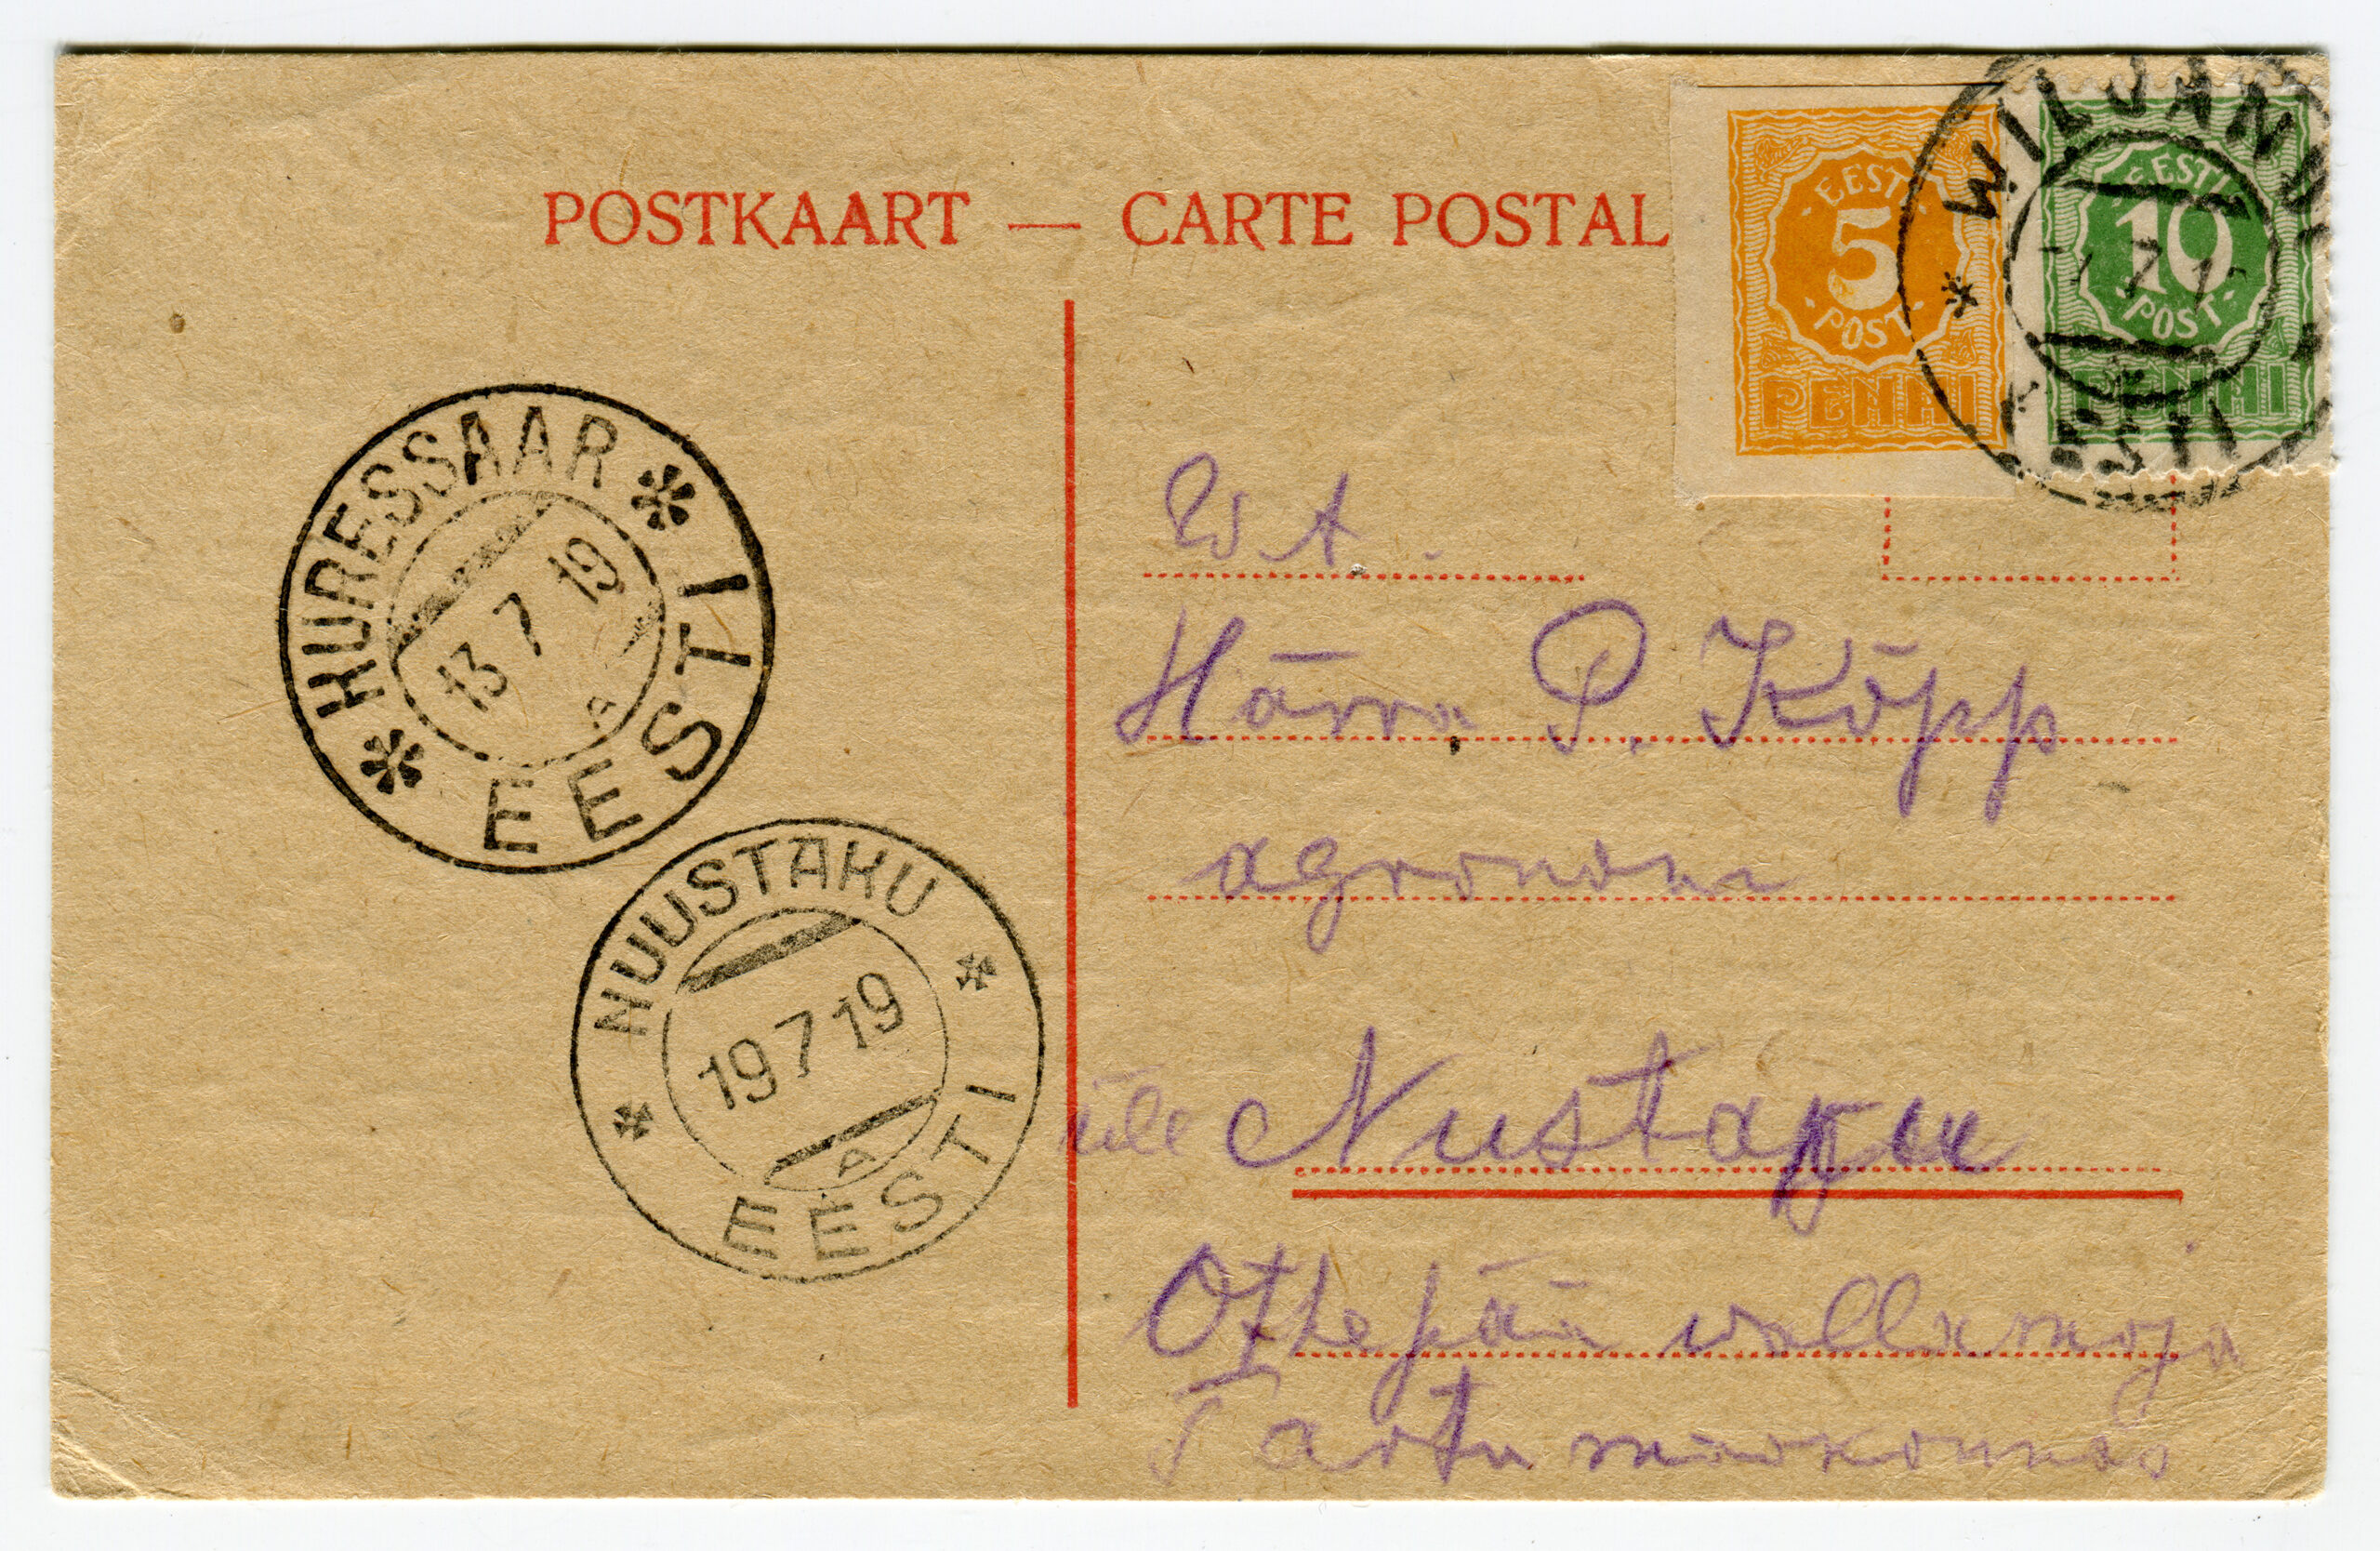 POSTKAART — CARTE POSTAL
EESTI
5
POST
PENNI
EESTI
10
POST
PENNI
* WILJANDI *
EESTI
* KURESSAAR *
13 7 19
A
EESTI
* NUUSTAKU *
19 7 19
A
EESTI
W A.
Härra P. Kõpp
agronom
üle Nustaku
Othepää vallamaja
Tartu maakonnas